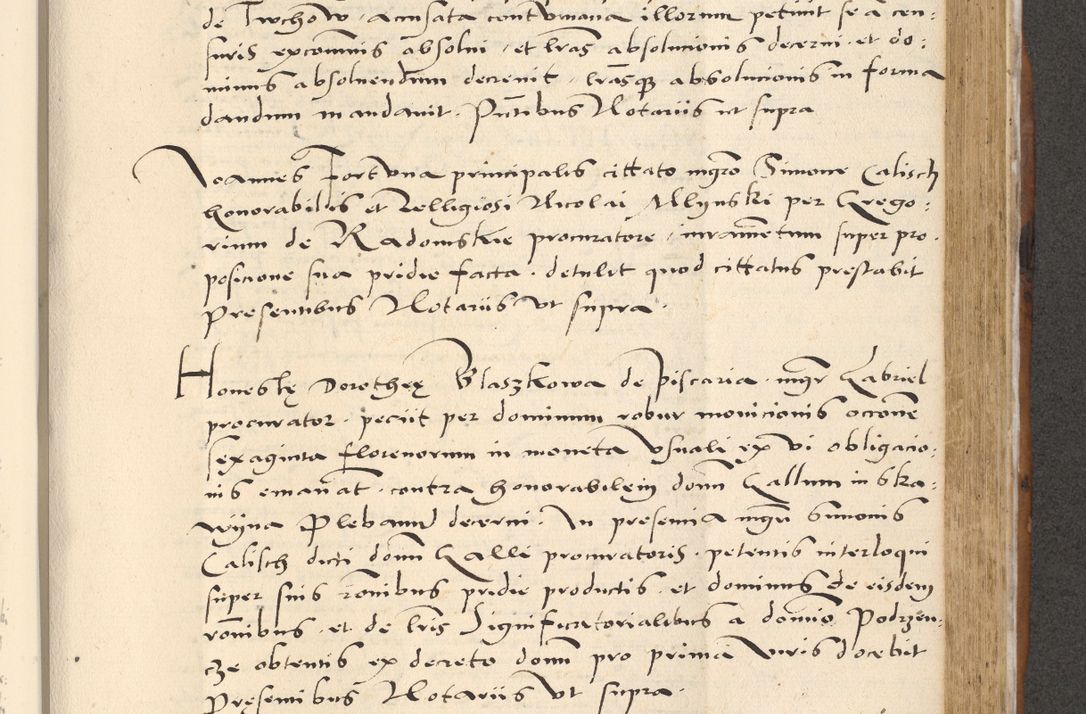 de Twchow · acusata contumatia illorum petiuit se a cen:
suris excomnis absolui · et lras absolucionis decerni · et do:
minus absoluendum decreuit · lrasq absolucionis in forma
dandum mandauit · Pntibus Notariis ut supra
Joannes Fortuna principalis cittato mgro Simone Calisch
honorabilis et Relligiosi Nicolai Mlynski per Grego:
rium de Radomskie procuratore · iuramentum super pro:
posicione sua pridie facta · detulit quod cittatus prestabit
Presentibus Notariis Vt supra ·
Honestę Dorotheę Blaszkowa de Piscaria · mgr Gabriel
procurator · peciit per dominum robur monicionis occone
sexaginta florenorum in moneta Vsuali ex vi obligacio:
nis emanat · contra honorabilem domn Gallum in Ska:
wyna Plebanum decerni · In presentia mgri Simonis
Calisch dicti domi Galli procuratoris · petentis interloqui
super suis ronibus pridie productis · et dominus de eisdem
ronibus · et de lris Significatorialibus a domio Podrzen:
cze obtentis ex decreto domi pro prima Juris docebit
Presentibus Notariis Vt supra ·